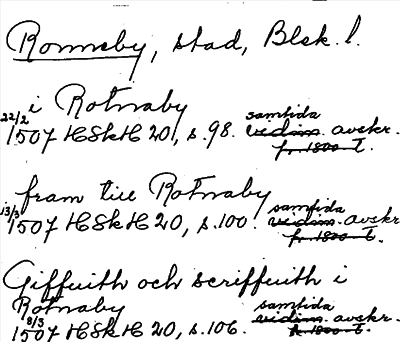 Ronneby, stad, Blek. l.
i Rotnaby
22/2 samtida
1507 HSkH 20, s. 98. vidim. avskr.
fr. 1800-t.
fram till Rotnaby
13/3 samtida
1507 HSkH 20, s. 100. vidim. avskr.
fr. 1800-t.
Giffuith och scriffuith i
Rotnaby
8/3 samtida
1507 HSkH 20, s. 106. vidim. avskr.
fr. 1800-t.